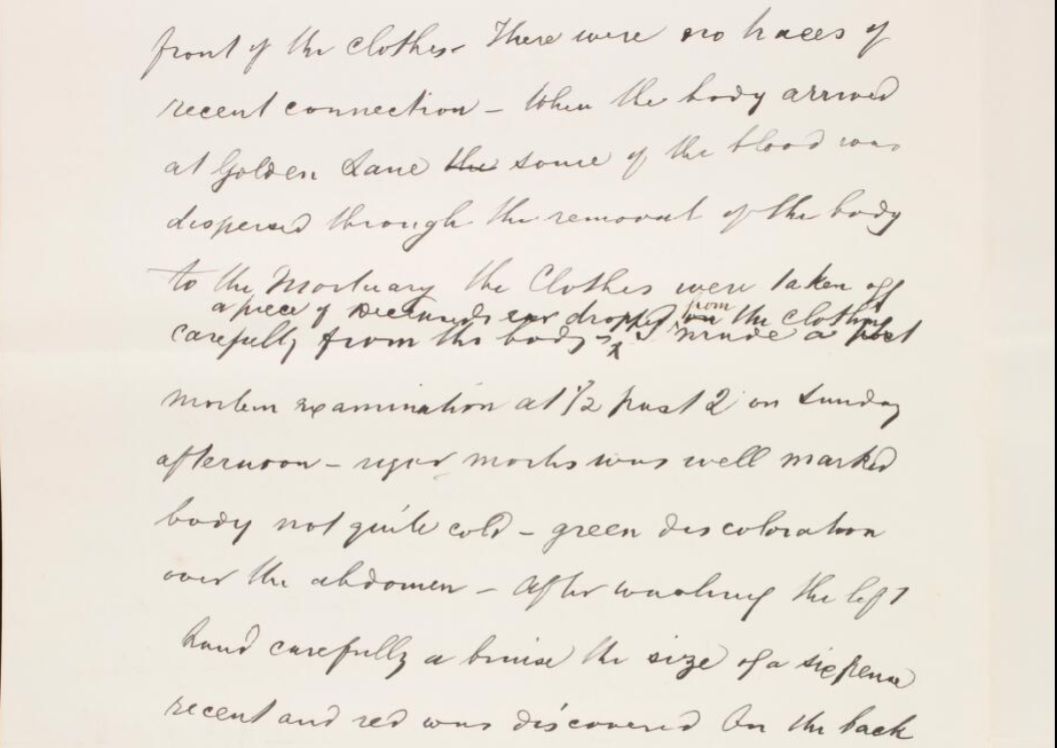 front of the clothes. There were no traces of
recent connection – When the body arrived
at Golden Lane the some of the blood was
dispersed through the removal of the body
to the Mortuary the Clothes were taken off
a piece of deceaseds ear dropped on from the clothing
carefully from the body – x I made a post
mortem examination at 1/2 past 2 on Sunday
afternoon – rigor mortis was well marked
body not quite cold – green discoloration
over the abdomen – After washing the left
hand carefully a bruise the size of a sixpence
recent and red was discovered on the back